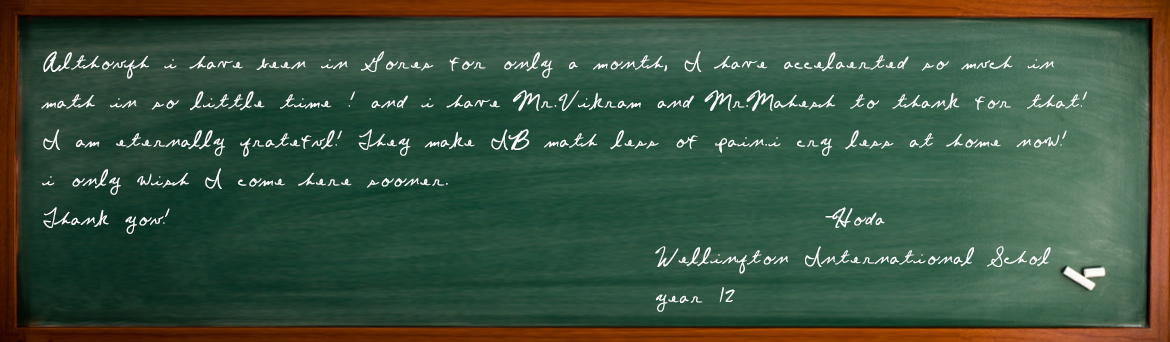 Although i have been in Sores for only a month, I have accelaerted so much in
math in so little time ! and i have Mr.Vikram and Mr.Mahesh to thank for that!
I am eternally grateful! They make IB math less of pain.i cry less at home now!
i only wish I come here sooner.
Thank you!
Hoda
Wellington International Schol
year 12